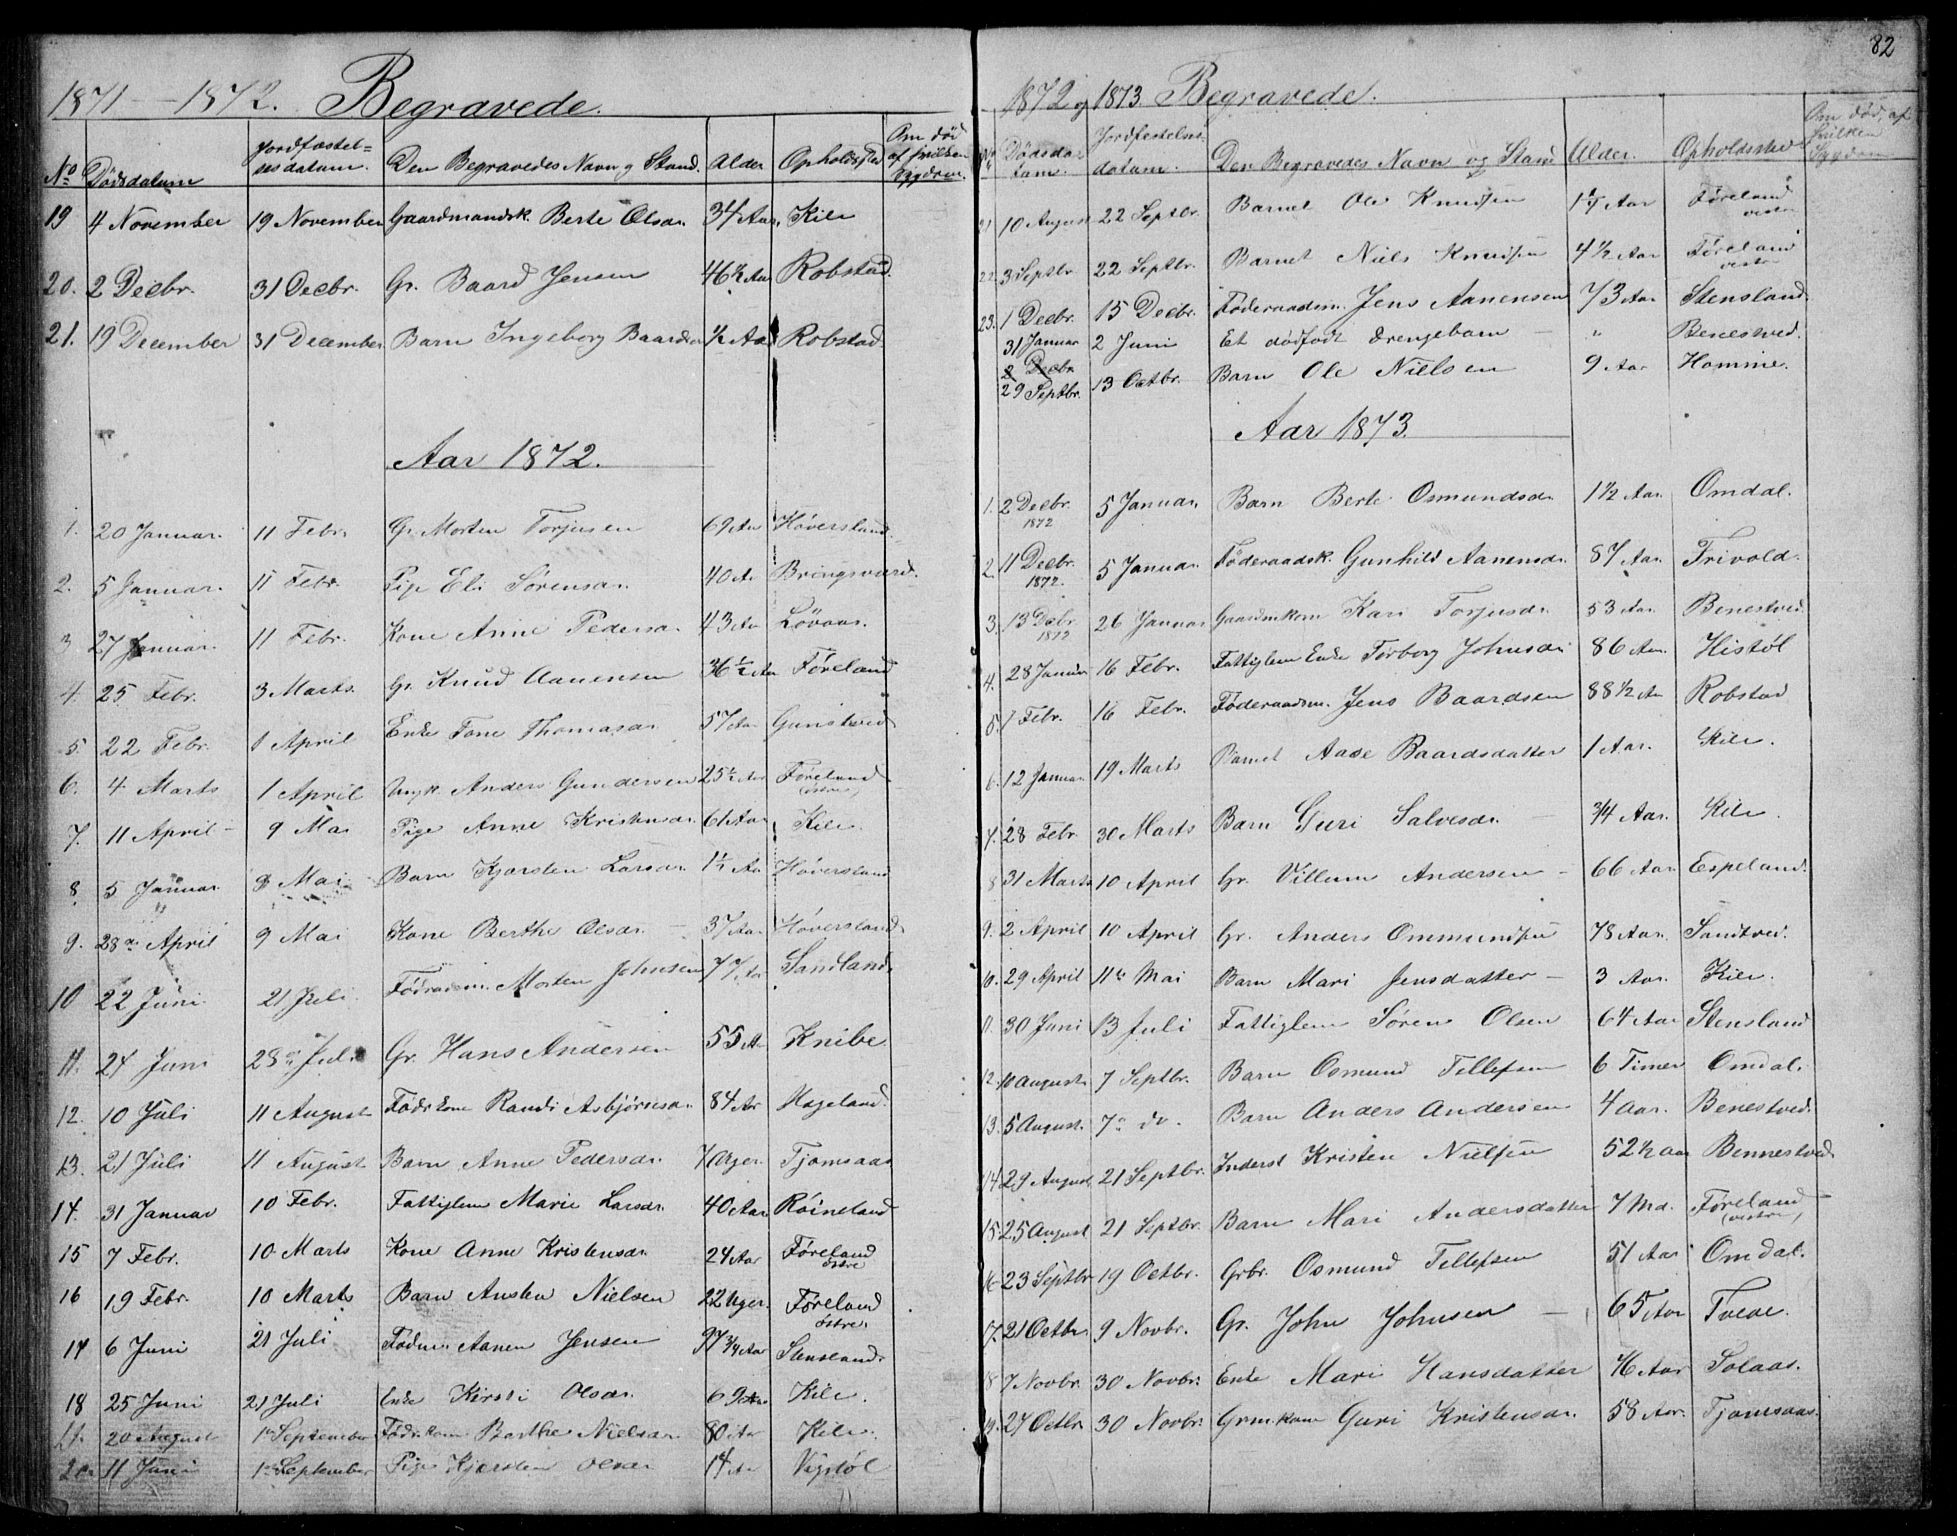 1871 - 1872. Begravede.
No Dødsdatum Jordfæstelsesdatum. Den Begravedes Navn og Stand. Alder Opholdssted Om død af hvilken Sygdom.
19 4 November 19 November Gaardmandsk. Berte Olsdr. 34 Aar. Kile
20. 2 Decbr. 31 Decbr. Gr. Baard Jensen 46 1/2 Aar Robstad.
21. 19 December 31 December Barn Ingeborg Baardsdr 1/2 Aar Robstad
Aar 1872.
1. 20 Januar. 11 Febr. Gr. Morten Torjusen 69 Aar Höversland
2. 5 Januar. 11 Febr. Pige Eli Sörensdr. 40 Ar Bringsværd.
3 27 Januar. 11 Febr. Kone Anne Pedersdr. 43 Aar Lövaas.
4. 25 Febr. 3 Marts. Gr. Knud Aanensen 36 1/2 Aar Föreland
5. 22 Febr. 1 April Enke Tone Thomasdr 57 Aar Gunstved
6. 4 Marts 1 April Ungk. Anders Gundersen 25 1/2 Aar Föreland
(östre)
7. 11 April 9 Mai Pige Anne Kristensdr. 61 Aar Kile
8 5 Januar 9 Mai Barn Kjersten Larsdr. 1 1/2 Aar Höversland
9. 28de April 9 Mai Kone Berthe Olsdr. 37 Aar Höversland
10 22 Juni 21 Juli Födraadm. Morten Johnsen 77 Aar Sandland.
11. 24 Juni 28de Juli Gr. Hans Andersen 55 Ar Knibe
12. 10 Juli 11 August Födrkone Randi Asbjörnsdr. 84 Ar Hageland.
13. 21 Juli 11 August Barn Anne Pedersdr. 7 Uger Tjomsaas
14. 31 Januar 10 Febr. Fattiglem Marie Larsdr. 40 Aar. Röineland
15 7 Febr. 10 Marts Kone Anne Kristensdr. 24 Aar Föreland
östre
16 19 Febr. 10 Marts Barn Austen Nielsen 22 Uger. Föreland
östre.
17 6 Juni 21 Juli Födm. Aanen Jensen 97 3/4 Aar Stensland.
18 25 Juni 21 Juli Enke Kirsti Olsdr. 69 Aar Kile.
20 August 1 September Födrkone Berthe Nielsdr. 80 Aar Kile.
20. 11 Juni 1 September Pige Kjersten Olsdr 14 Ar Vigstöl
82
1872 og 1873 Begravede.
Dødsdatum. Jordfestelsesdatum. Den Begravedes Navn og Stand Alder. Opholdssted Om død, af hvilken Sygdom
21 10 August 22 Septbr. Barnet Ole Knudsen Aar Föreland
vestre
22 3 Septbr. 22 Septbr. Barnet Niels Knudsen 4 1/2 Aar Föreland
vestre
23. 1 Decbr. 15 Decbr. Föderaadsm. Jens Aanensen 73 Aar. Stensland.
31 Januar 2 Juni Et dödfødt Drengebarn — " Benestved.
2 Decbr.
29 Septbr. 13 Octbr. Barn Ole Nielsen 9 Aar Homme.
Aar 1873.
1. 2 Decbr. 5 Januar. Barn Berte Osmundsdr. 1 1/2 Aar. Omdal.
1872
2. 11 Decbr. 5 Januar. Föderaadsk. Gunhild Aanensdr. 87 Aar. Trivold.
1872.
3. 13 Decbr. 26 Januar Gaardmkone Kari Torjusdr. 53 Aar. Benestved.
1872
4. 28 Januar 16 Febr. Fattiglem Enke Torborg Johnsdr 86 Aar. Histöl
5. 1 Febr. 16 Febr. Föderaadsm. Jens Baardsen 88 1/2 Ar Robstad
6. 12 Januar. 19 Marts Barnet Aase Baardsdatter 1 Aar. Kile.
7. 28 Febr. 30 Marts Barn Guri Salvesdr. — 3/4 Aar. Kile.
8 31 Marts 10 April Gr. Villum Andersen — 66 Aar. Espeland.
9. 2 April 10 April Gr. Anders Ommundsen 78 Aar. Sandved.
10. 29 April 11te Mai Barn Mari Jensdatter — 3 Aar. Kile.
11. 30 Juni 13 Juli Fattiglem Sören Olsen 64 Aar Stensland
12. 10 August. 7 Septbr. Barn Osmund Tellefsen 6 Timer Omdal.
13. 5 August. 7de do. Barn Anders Andersen 4 Aar. Benestved.
14. 29 August 21 Septbr. Inderst Kristen Nielsen 52 1/2 Aar Bennestved.
15 25 August 21 Septbr. Barn Mari Andersdatter 7 Md. Föreland
(vestre)
16 23 Septbr 19 Octbr. Grbr. Osmund Tellefsen 51 Aar Omdal.
17. 21 Octbr. 9 Novbr. Gr. John Johnsen — 65 Aar Tvede.
18 7 Novbr. 30 Novbr. Enke Mari Hansdatter 76 Aar Solaas.
19. 27 Octbr 30 Novbr. Grmkone Guri Kristensdr. 58 Aar. Tjomsaas.